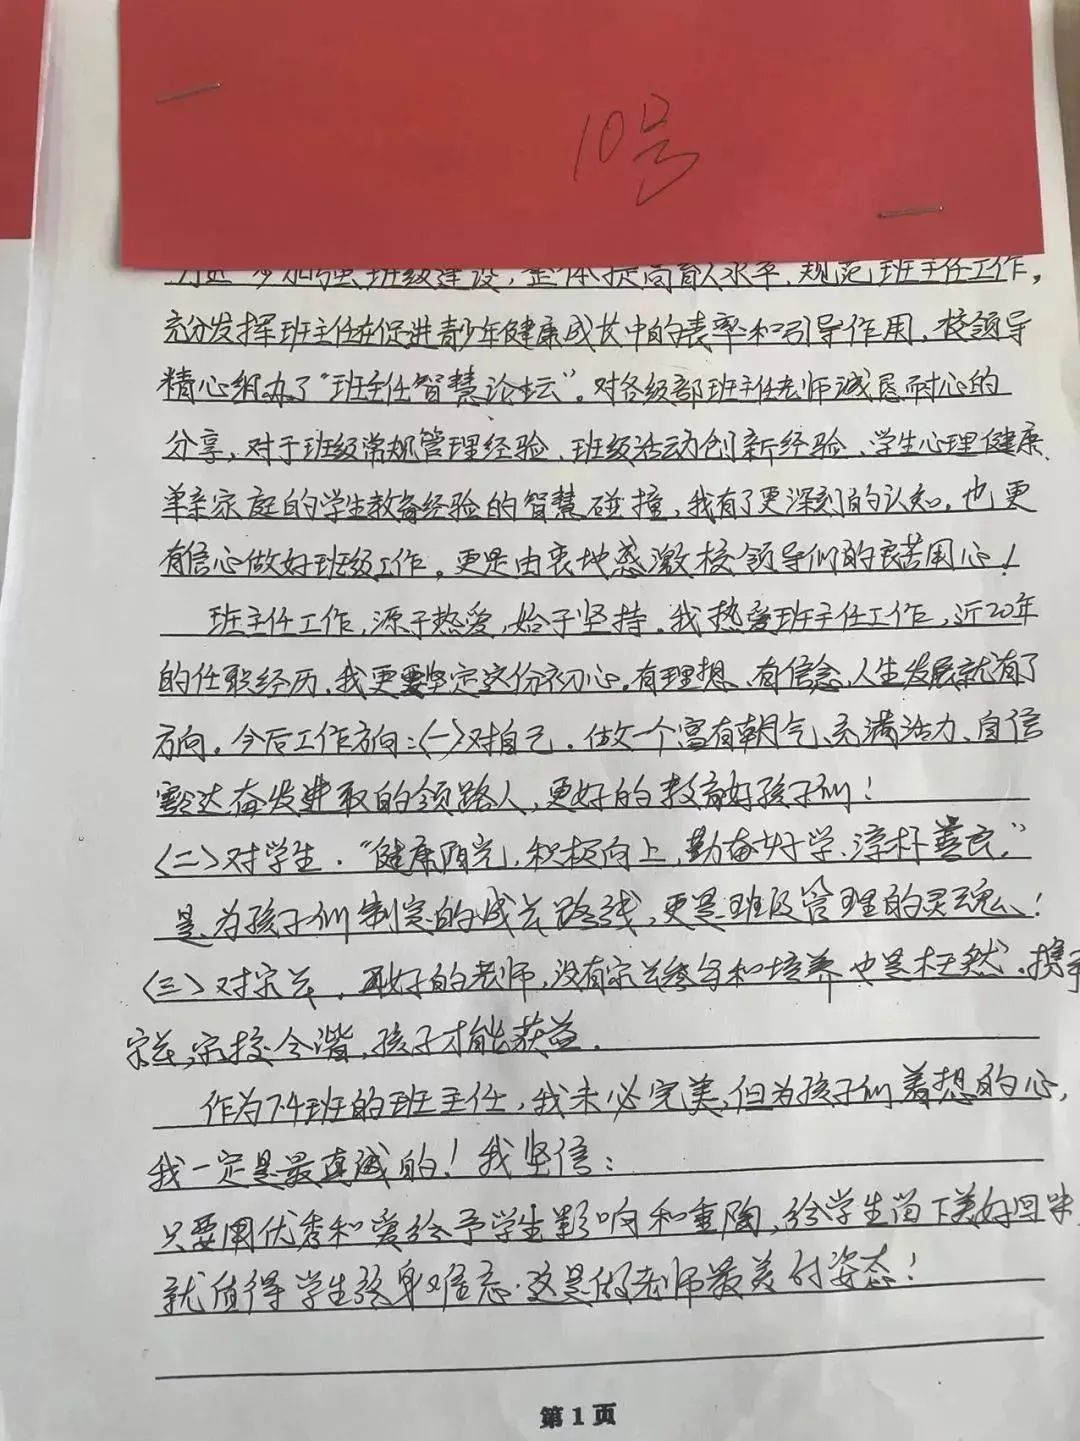 10号
为进一步加强班级建设，整体提高育人水平，规范班主任工作，
充分发挥班主任在促进青少年健康成长中的表率和引导作用，校领导
精心组办了“班主任智慧论坛”。对各级部班主任老师诚恳耐心的
分享，对于班级常规管理经验、班级活动创新经验、学生心理健康、
单亲家庭的学生教育经验的智慧碰撞，我有了更深刻的认知。也更
有信心做好班级工作，更是由衷地感激校领导们的良苦用心！
班主任工作，源于热爱，始于坚持。我热爱班主任工作，近20年
的任职经历，我更要坚定这份初心。有理想、有信念，人生发展就有了
方向。今后工作方向：〈一〉对自己．做一个富有朝气、充满活力、自信
豁达奋发进取的领路人，更好的教育好孩子们！
〈二〉对学生．“健康阳光，积极向上，勤奋好学、淳朴善良。”
是为孩子们制定的成长路线，更是班级管理的灵魂！
〈三〉对家长．再好的老师，没有家长参与和培养也是枉然．携手
家长，家校合谐，孩子才能获益．
作为7.4班的班主任，我未必完美，但为孩子们着想的心，
我一定是最真诚的！我坚信：
只要用优秀和爱给予学生影响和熏陶，给学生留下美好回味，
就值得学生终身难忘．这是做老师最美的姿态！
第1页